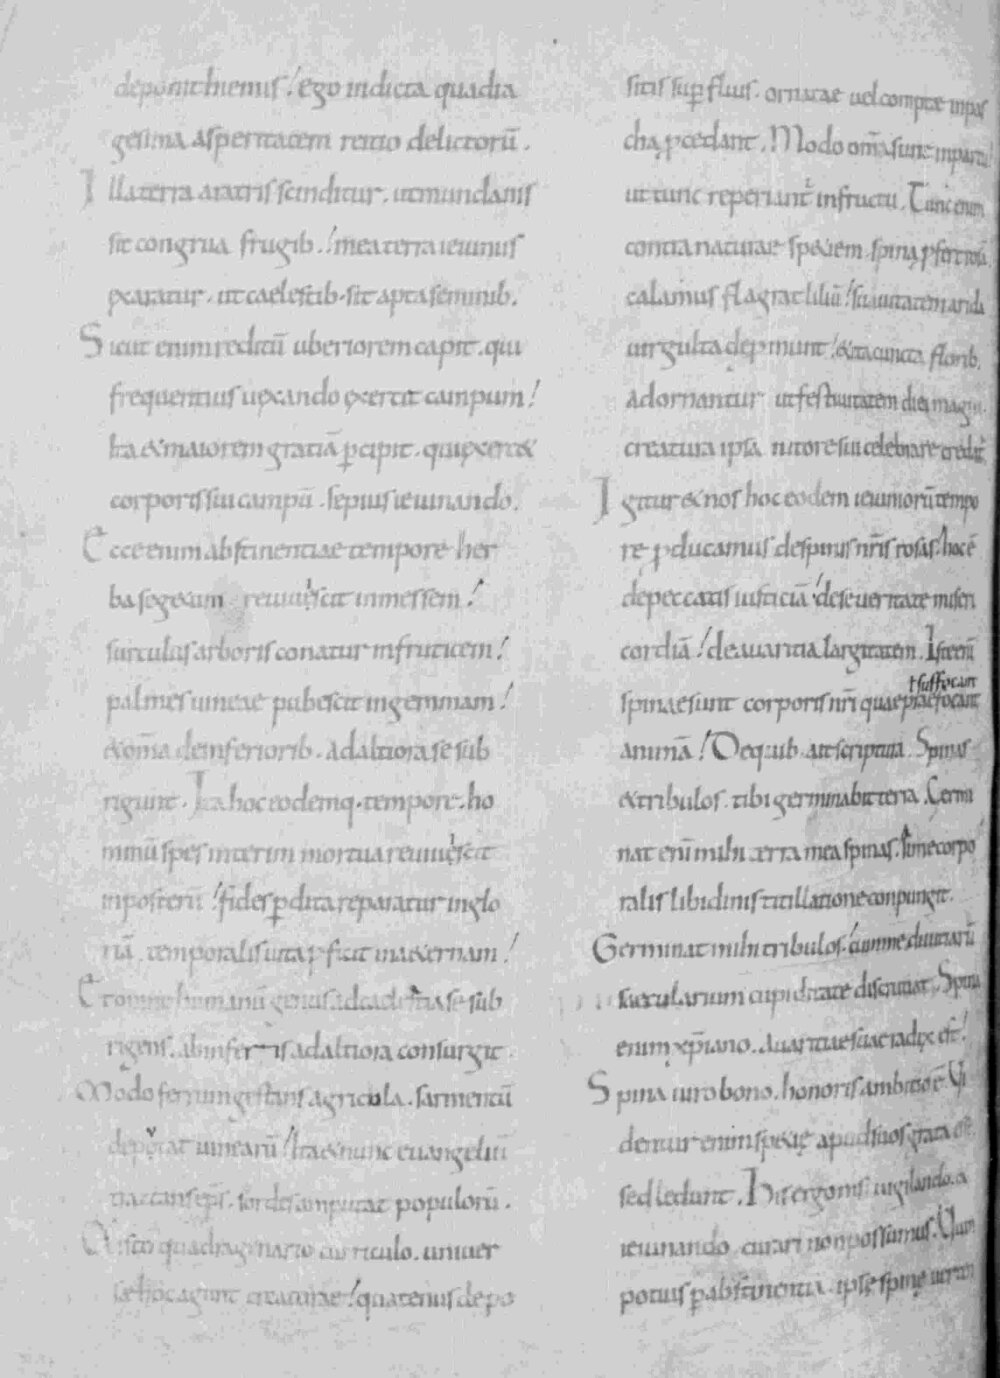 deponit hiemis! ego indicta quadra
gesima asperitatem reitio delictorū.
Illa terra aratris scinditur. ut mundanis
sit congrua frugib.! mea terra ieiuniis
exaratur. ut caelestib. sit apta seminib.
Sicut enim reditū uberiorem capit. qui
frequentius uexando exercit campum!
Ita & maiorem gratiā p̄cipit. qui exerc&
corporis sui campū. sepius ieiunando.
Ecce enim abstinentiae tempore her
ba segetum reuiuiscit in messem!
surculus arboris conatur in fruticem!
palmes uineae pubescit in gemmam!
& om̄a de inferiorib. ad altiora se sub
rigunt. Ita hoc eodemq. tempore. ho
minū spes interim mortua reuiuescit
in posterū! fides p̄dita reparatur in glo
riā. temporalis uita p̄ficit in aeternam!
Et omne humanū genus ad caelestia se sub
rigens. ab infernis ad altiora consurgit.
Modo ferrum gestans agricola. sarmentū
deputat uinearū! Ita & nunc euangeliū
sordes amputat populorū.
Isto quadragenario curriculo. uniuer
sae hoc agunt creaturae! quatenus depo
sitis sup̄fluis. ornatae uel comptae in pas
cha p̄cedant. Modo om̄a sunt in partu
ut tunc reperiant̄ in fructu. Tunc enim
contra naturae speciem. spina p̄fert rosā
calamus flagrat liliū! suauitatem arida
uirgulta depmunt! & ita cuncta florib.
adornantur ut festiuitatem diei magni.
creatura ipsa nitore sui celebrare credat̄.
Igitur & nos hoc eodem ieiuniorū tempo
re p̄ducamus de spinis nr̄is rosas! hoc ē
de peccatis iusticiā! de seueritate miseri
cordiā! de auaritia largitatem. Iste enī
ł suffocant
spinae sunt corporis nr̄i quae praefocant
animā! De q:ub. ait scriptura. Spinas
& tribulos. tibi germinabit terra. Germi
nat eni mihi terra mea spinas. si me corpo
ralis libidinis titillatione conpungit.
Germinat mihi tribulos! cum me diuitiarū
saecularium cupiditate discruciat. Spina
enim xp̄iano. auaritiae suae radix est!
Spina iuro bono. honoris ambitio ē. Vi
dentur enim specie apud uos grata ēē.
sed ledunt. His ergo nisi uigilando. &
ieiunando curari non possumus. Quin
potius p̄ abstinentia. ipse spine